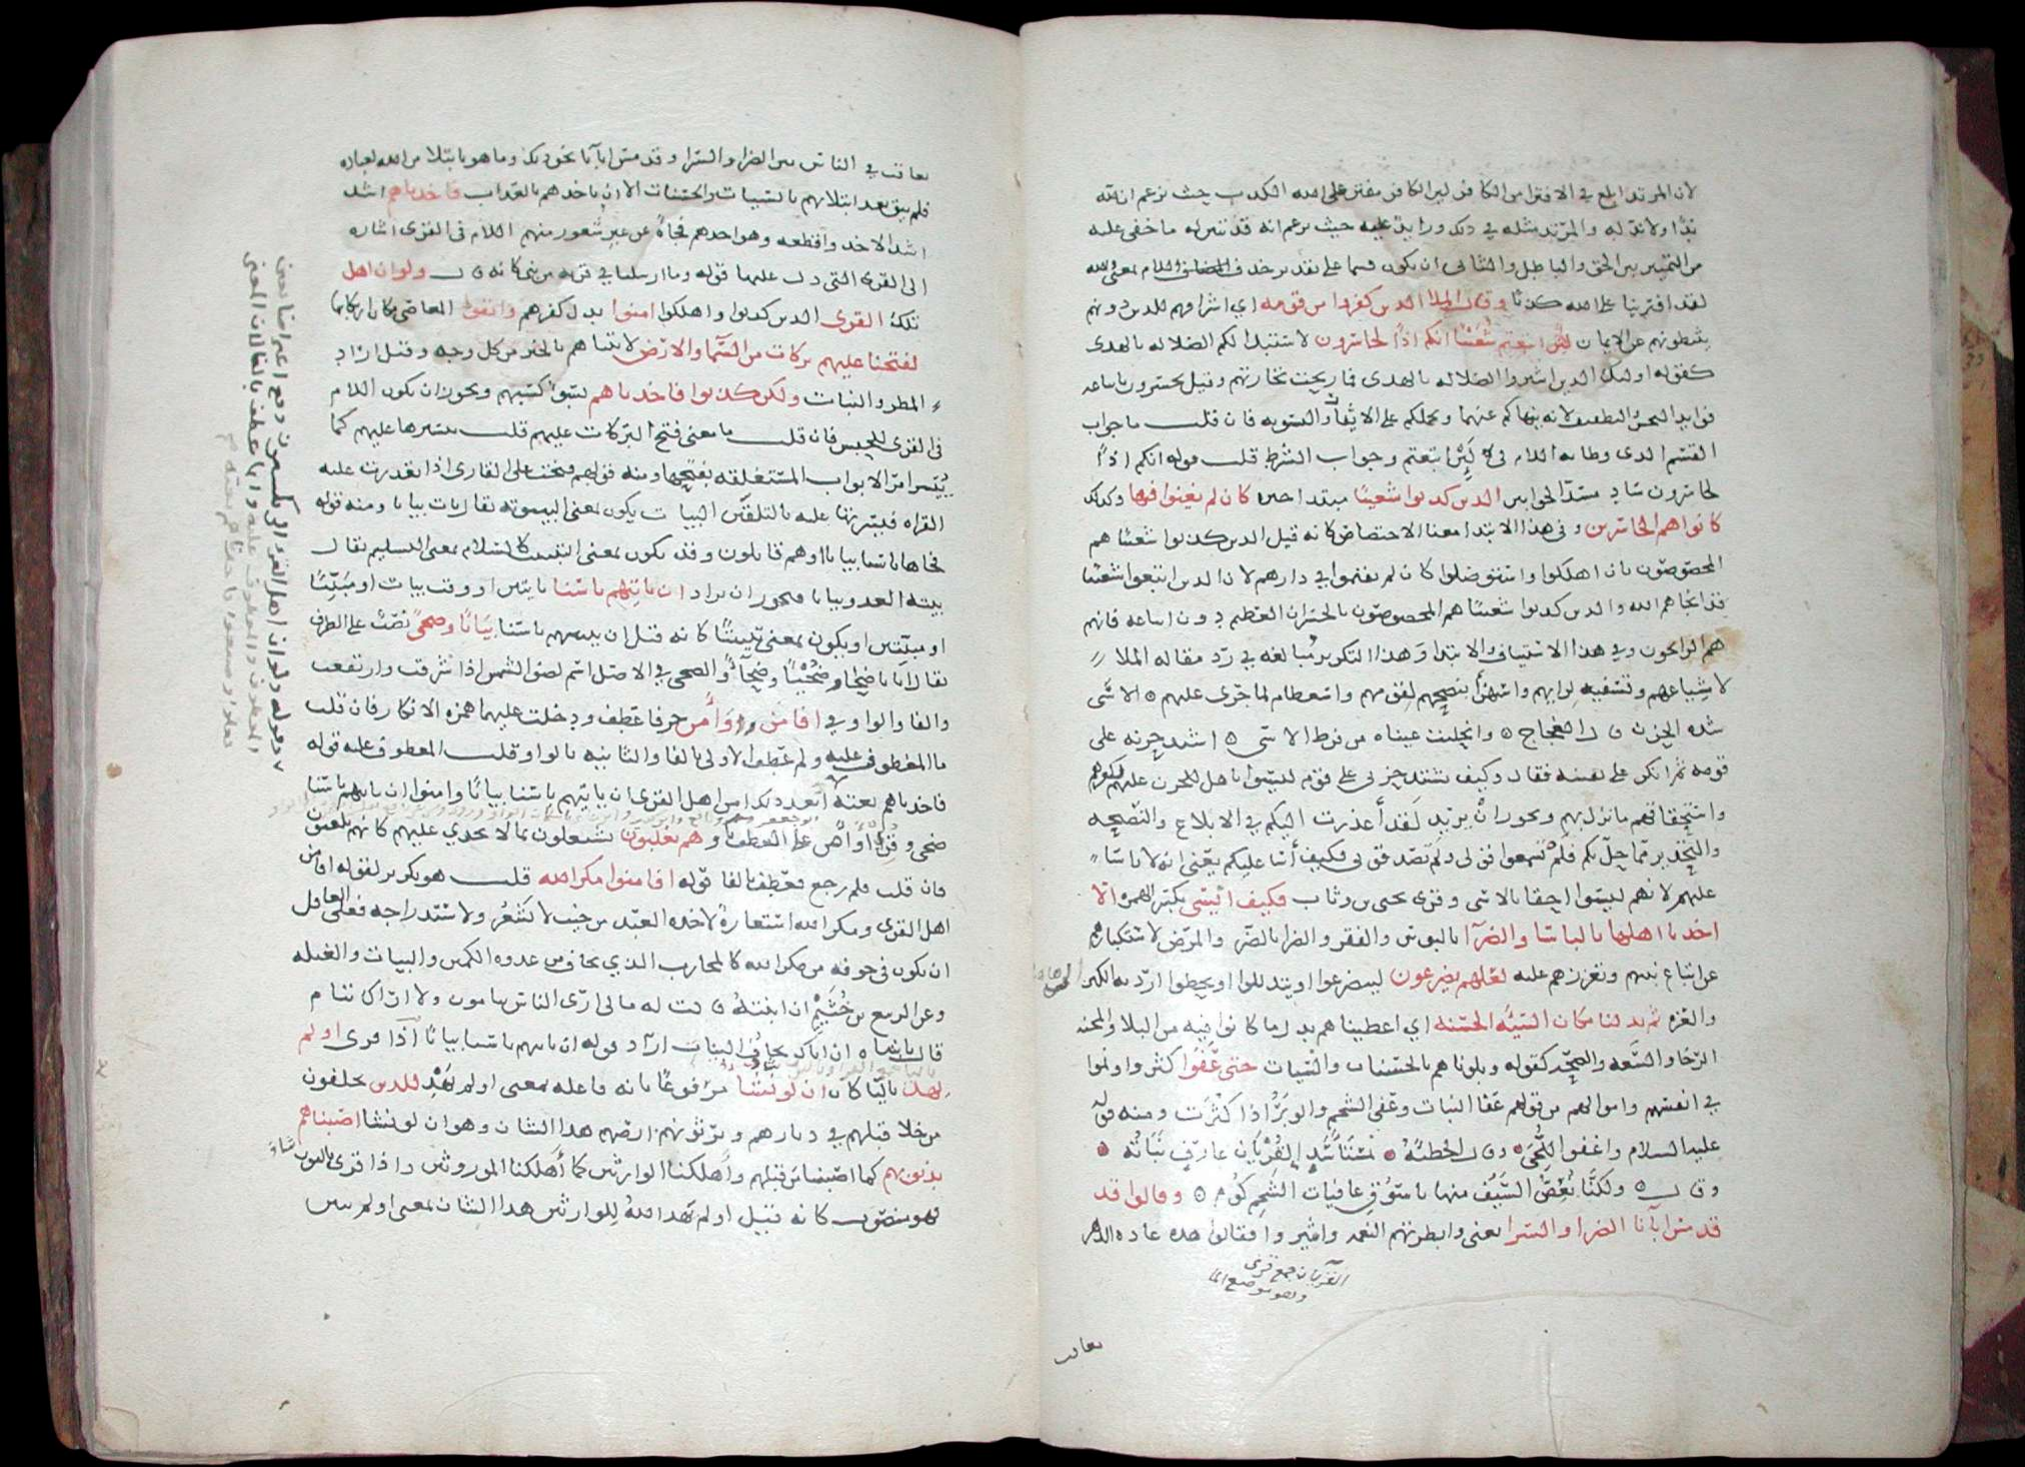 لان المرتد ابلغ في الافترا من الكافر لان الكافر مفتر على الله الكذب حيث يزعم ان لله
ندا ولا ند له والمرتد مثله في ذلك وزايد عليه حيث يزعم انه قد تبين له ما خفي عليه
من التمييز بين الحق والباطل والثاني ان يكون قسما على تقدير حذف اللام بمعنى والله
لقد افترينا على الله كذبا وقال الملا الذين كفروا من قومه اي اشرافهم للذين دونهم
يثبطونهم عن الايمان لئن اتبعتم شعيبا انكم اذا لخاسرون لاستبدالكم الضلاله بالهدى
كقوله اولئك الذين اشتروا الضلاله بالهدى فما ربحت تجارتهم وقيل تخسرون باتباعه
فوايد البخس والتطفيف لانه ينهاكم عنهما ويحملكم على الايفا والتسويه فان قلت ما جواب
القسم الذي وطاته اللام في لئن اتبعتم وجواب الشرط قلت قوله انكم اذا
لخاسرون ساد مسد الجوابين الذين كذبوا شعيبا مبتدا خبره كان لم يغنوا فيها وكذلك
كانوا هم الخاسرين وفي هذا الابتدا معنى الاختصاص كانه قيل الذين كذبوا شعيبا هم
المخصوصون بان اهلكوا واستوصلوا كان لم يقيموا في دارهم لان الذين اتبعوا شعيبا
قد انجاهم الله والذين كذبوا شعيبا هم المخصوصون بالخسران العظيم دون اتباعه فانهم
هم الرابحون وفي هذا الاستيناف والابتدا وهذا التكرير مبالغه في رد مقاله الملا
لاشياعهم وتسفيه لرايهم واستهزا بنصحهم لقومهم واستعظام لما جرى عليهم الاسى
شده الحزن قال العجاج وانحلبت عيناه من فرط الاسى اشتد حزنه على
قومه ثم انكر على نفسه فقال وكيف يشتد حزني على قوم ليسوا باهل للحزن عليهم لكفرهم
واستحقاقهم ما نزل بهم ويجوز ان يريد لقد أعذرت اليكم في الابلاغ والنصيحه
والتحذير مما حل بكم فلم تسمعوا قولي ولم تصدقوني فكيف أسا عليكم يعني انه لا ياسا
عليهم لانهم ليسوا احقا بالاسى وقرى يحيى بن وثاب فكيف ايسى بكسر الهمزه الا
اخذنا اهلها بالباسا والضرا بالبوس والفقر والضرا بالضر والمرض لاستكبارهم
عن اتباع نبيهم وتعززهم عليه لعلهم يضرعون ليتضرعوا ويتذللوا ويحطوا ارديه الكبر
والعزه ثم بدلنا مكان السيئه الحسنه اي اعطيناهم بدل ما كانوا فيه من البلا والمحنه
الرخا والسعه والصحه كقوله وبلوناهم بالحسنات والسيات حتى عفوا كثروا ونموا
في انفسهم واموالهم من قولهم عفا النبات وعفى الشحم والوبر اذا كثرت ومنه قوله
عليه السلام واعفوا اللحى وقال الحطيئة بمستأسد القريان عاف نباته
وقال ولكنا نعض السيف منها باسوق عافيات الشحم كوم وقالوا قد
قد مس آبآنا الضرا والسرا يعني وابطرتهم النعمه واشروا فقالوا هذه عاده الدهر
القريان جمع قرى
وهو موضع الما
يعاقب
يعاقب في الناس بين الضرا والسرا وقد مس ابآنا نحو ذلك وما هو بابتلا من الله لعباده
فلم يبق بعد ابتلائهم بالسيات والحسنات الا ان ياخذهم بالعذاب فاخذناهم اشد
اشد الاخذ وافظعه وهو اخذهم فجاة عن غير شعور منهم اللام في القرى اشاره
الى القرى التي دل عليها قوله وما ارسلنا في قريه من نبي كانه قال ولو ان اهل
تلك القرى الذين كذبوا واهلكوا امنوا بدل كفرهم واتقوا المعاصي مكان ارتكابها
لفتحنا عليهم بركات من السما والارض لاتيناهم بالخير من كل وجه وقيل اراد
المطر والنبات ولكن كذبوا فاخذناهم بسو كسبهم ويجوز ان يكون اللام
في القرى للجنس فان قلت ما معنى فتح البركات عليهم قلت تيسيرها عليهم كما
ييسر امر الابواب المستغلقه بفتحها ومنه قولهم فتحت على القارى اذا تعذرت عليه
القراه فيسرتها عليه بالتلقين البيات يكون بمعنى البيتوته يقال بات بياتا ومنه قوله
فجاها باسنا بياتا او هم قايلون وقد يكون بمعنى التبييت كالسلام بمعنى التسليم يقال
بيته العدو بياتا فيجوز ان يراد ان ياتيهم باسنا بايتين او وقت بيات او مبيتا
او مبيتين او يكون بمعنى تبييتا كانه قيل ان يبيتهم باسنا بياتا وضحى نصب على الظرف
يقال اتانا ضحى وضحيا وضحآ والضحى في الاصل اسم لضو الشمس اذا اشرقت وارتفعت
والفا والواو في افامن و اوأمن حرفا عطف ودخلت عليهما همزه الانكار فان قلت
ما المعطوف عليه ولم عطف الاولى بالفا والثانيه بالواو قلت المعطوف عليه قوله
فاخذناهم بغته ابعد ذلك امن اهل القرى ان ياتيهم باسنا بياتا وامنوا ان ياتيهم باسنا
ضحى وقرى أو امن على العطف باو وهم يلعبون يشتغلون بما لا يجدي عليهم كانهم يلعبون
فان قلت فلم رجع فعطف بالفا قوله افامنوا مكر الله قلت هو تكرير لقوله افامن
اهل القرى ومكر الله استعارة لاخذه العبد من حيث لا يشعر ولاستدراجه فعلى العاقل
ان يكون في خوفه من مكر الله كالمحارب الذي يخاف من عدوه الكمين والبيات والغيله
وعن الربيع بن خثيم ان ابنته قالت له ما لي ارى الناس ينامون ولا اراك تنام
قال يا بنتاه ان اباك يخاف البيات اراد قوله ان ياتيهم باسنا بياتا اذا قرى اولم
يهد باليا كان ان لو نشا مرفوعا بانه فاعله بمعنى اولم يهد للذين يخلفون
من خلا قبلهم في ديارهم ويرثونهم ارضهم هذا الشان وهو ان لو نشا اصبناهم
بذنوبهم كما اصبنا من قبلهم واهلكنا الوارثين كما أهلكنا الموروثين واذا قرى بالنون
فهو منصوب كانه قيل اولم يهد الله للوارثين هذا الشان بمعنى اولم نبين